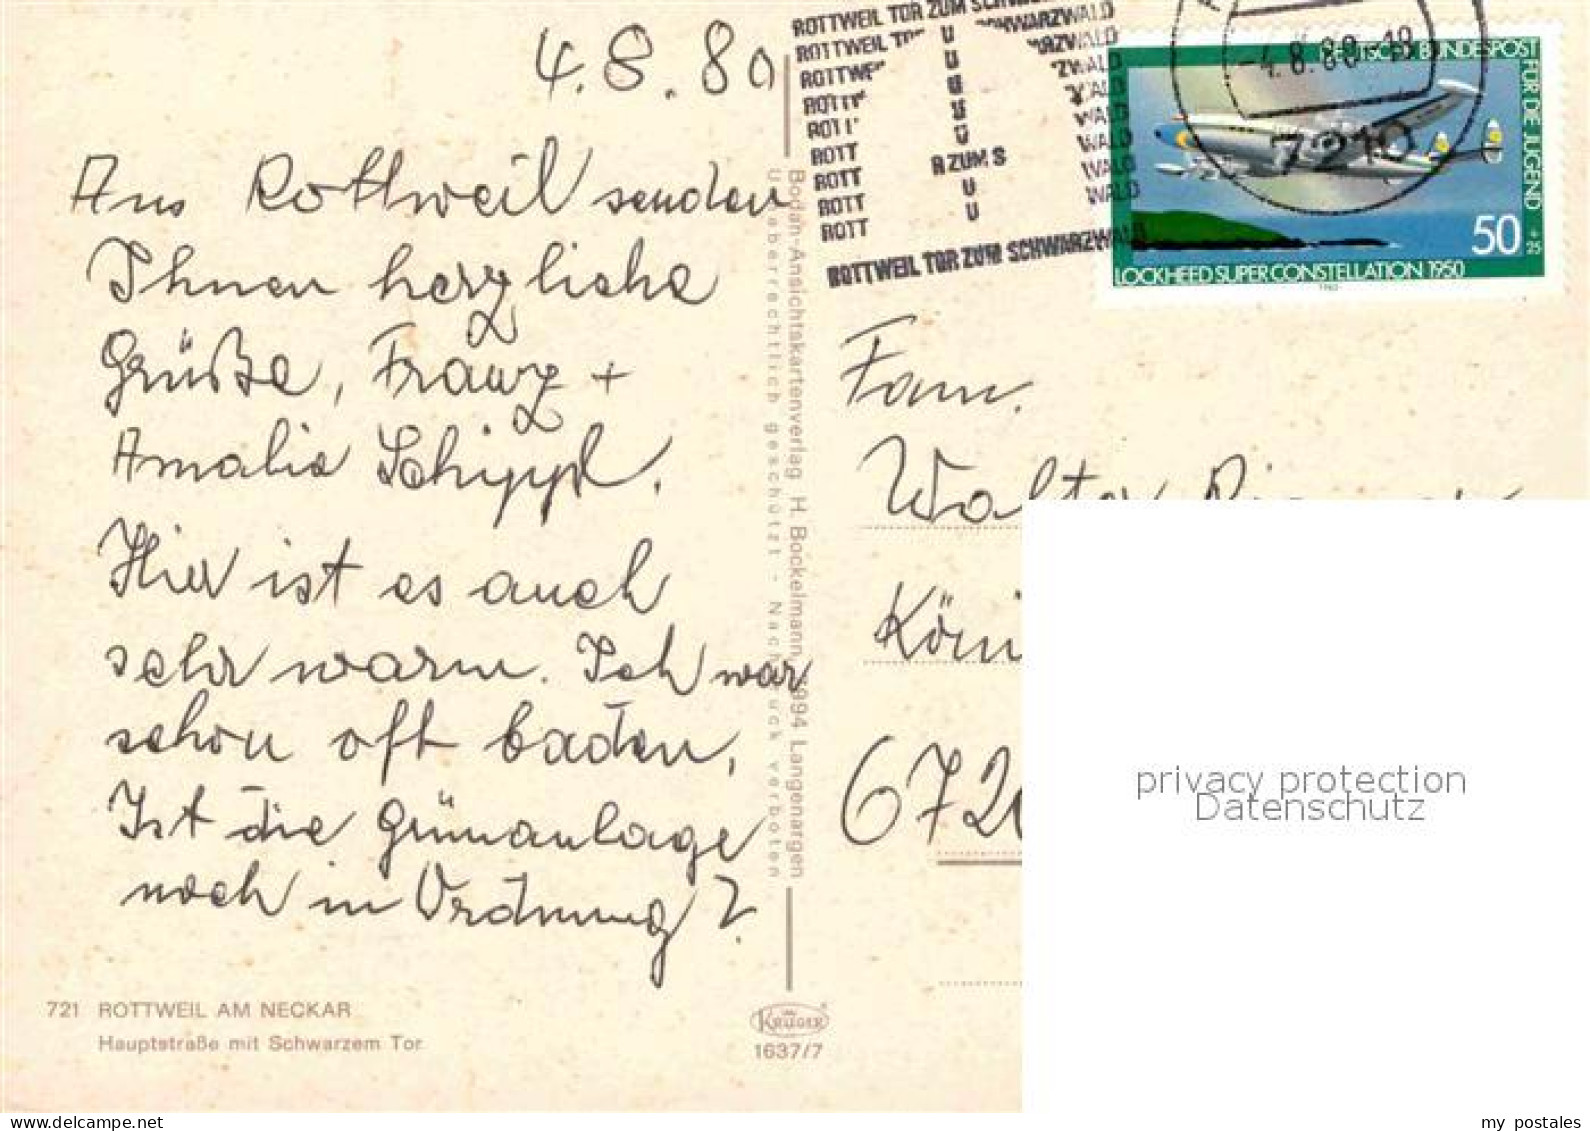 4.8.80
Aus Rottweil senden
Ihnen herzliche
Grüße, Franz +
Amalia Schippl.
Hier ist es auch
sehr warm. Ich war
schon oft baden.
Ist die Grünanlage
noch in Ordnung?
721 ROTTWEIL AM NECKAR
Hauptstraße mit Schwarzem Tor
Bodan-Ansichtskartenverlag H. Bockelmann, 7994 Langenargen
Urheberrechtlich geschützt - Nachdruck verboten
KRÜGER
1637/7
ROTTWEIL TOR ZUM SCHWARZWALD
ROTTWEIL TOR ZUM SCHWARZWALD
-4.8.80-18
7210
DEUTSCHE BUNDESPOST
FÜR DIE JUGEND
50 + 25
LOCKHEED SUPER CONSTELLATION 1950
1980
Fam.
Walter
Köni
672
privacy protection
Datenschutz
my postales